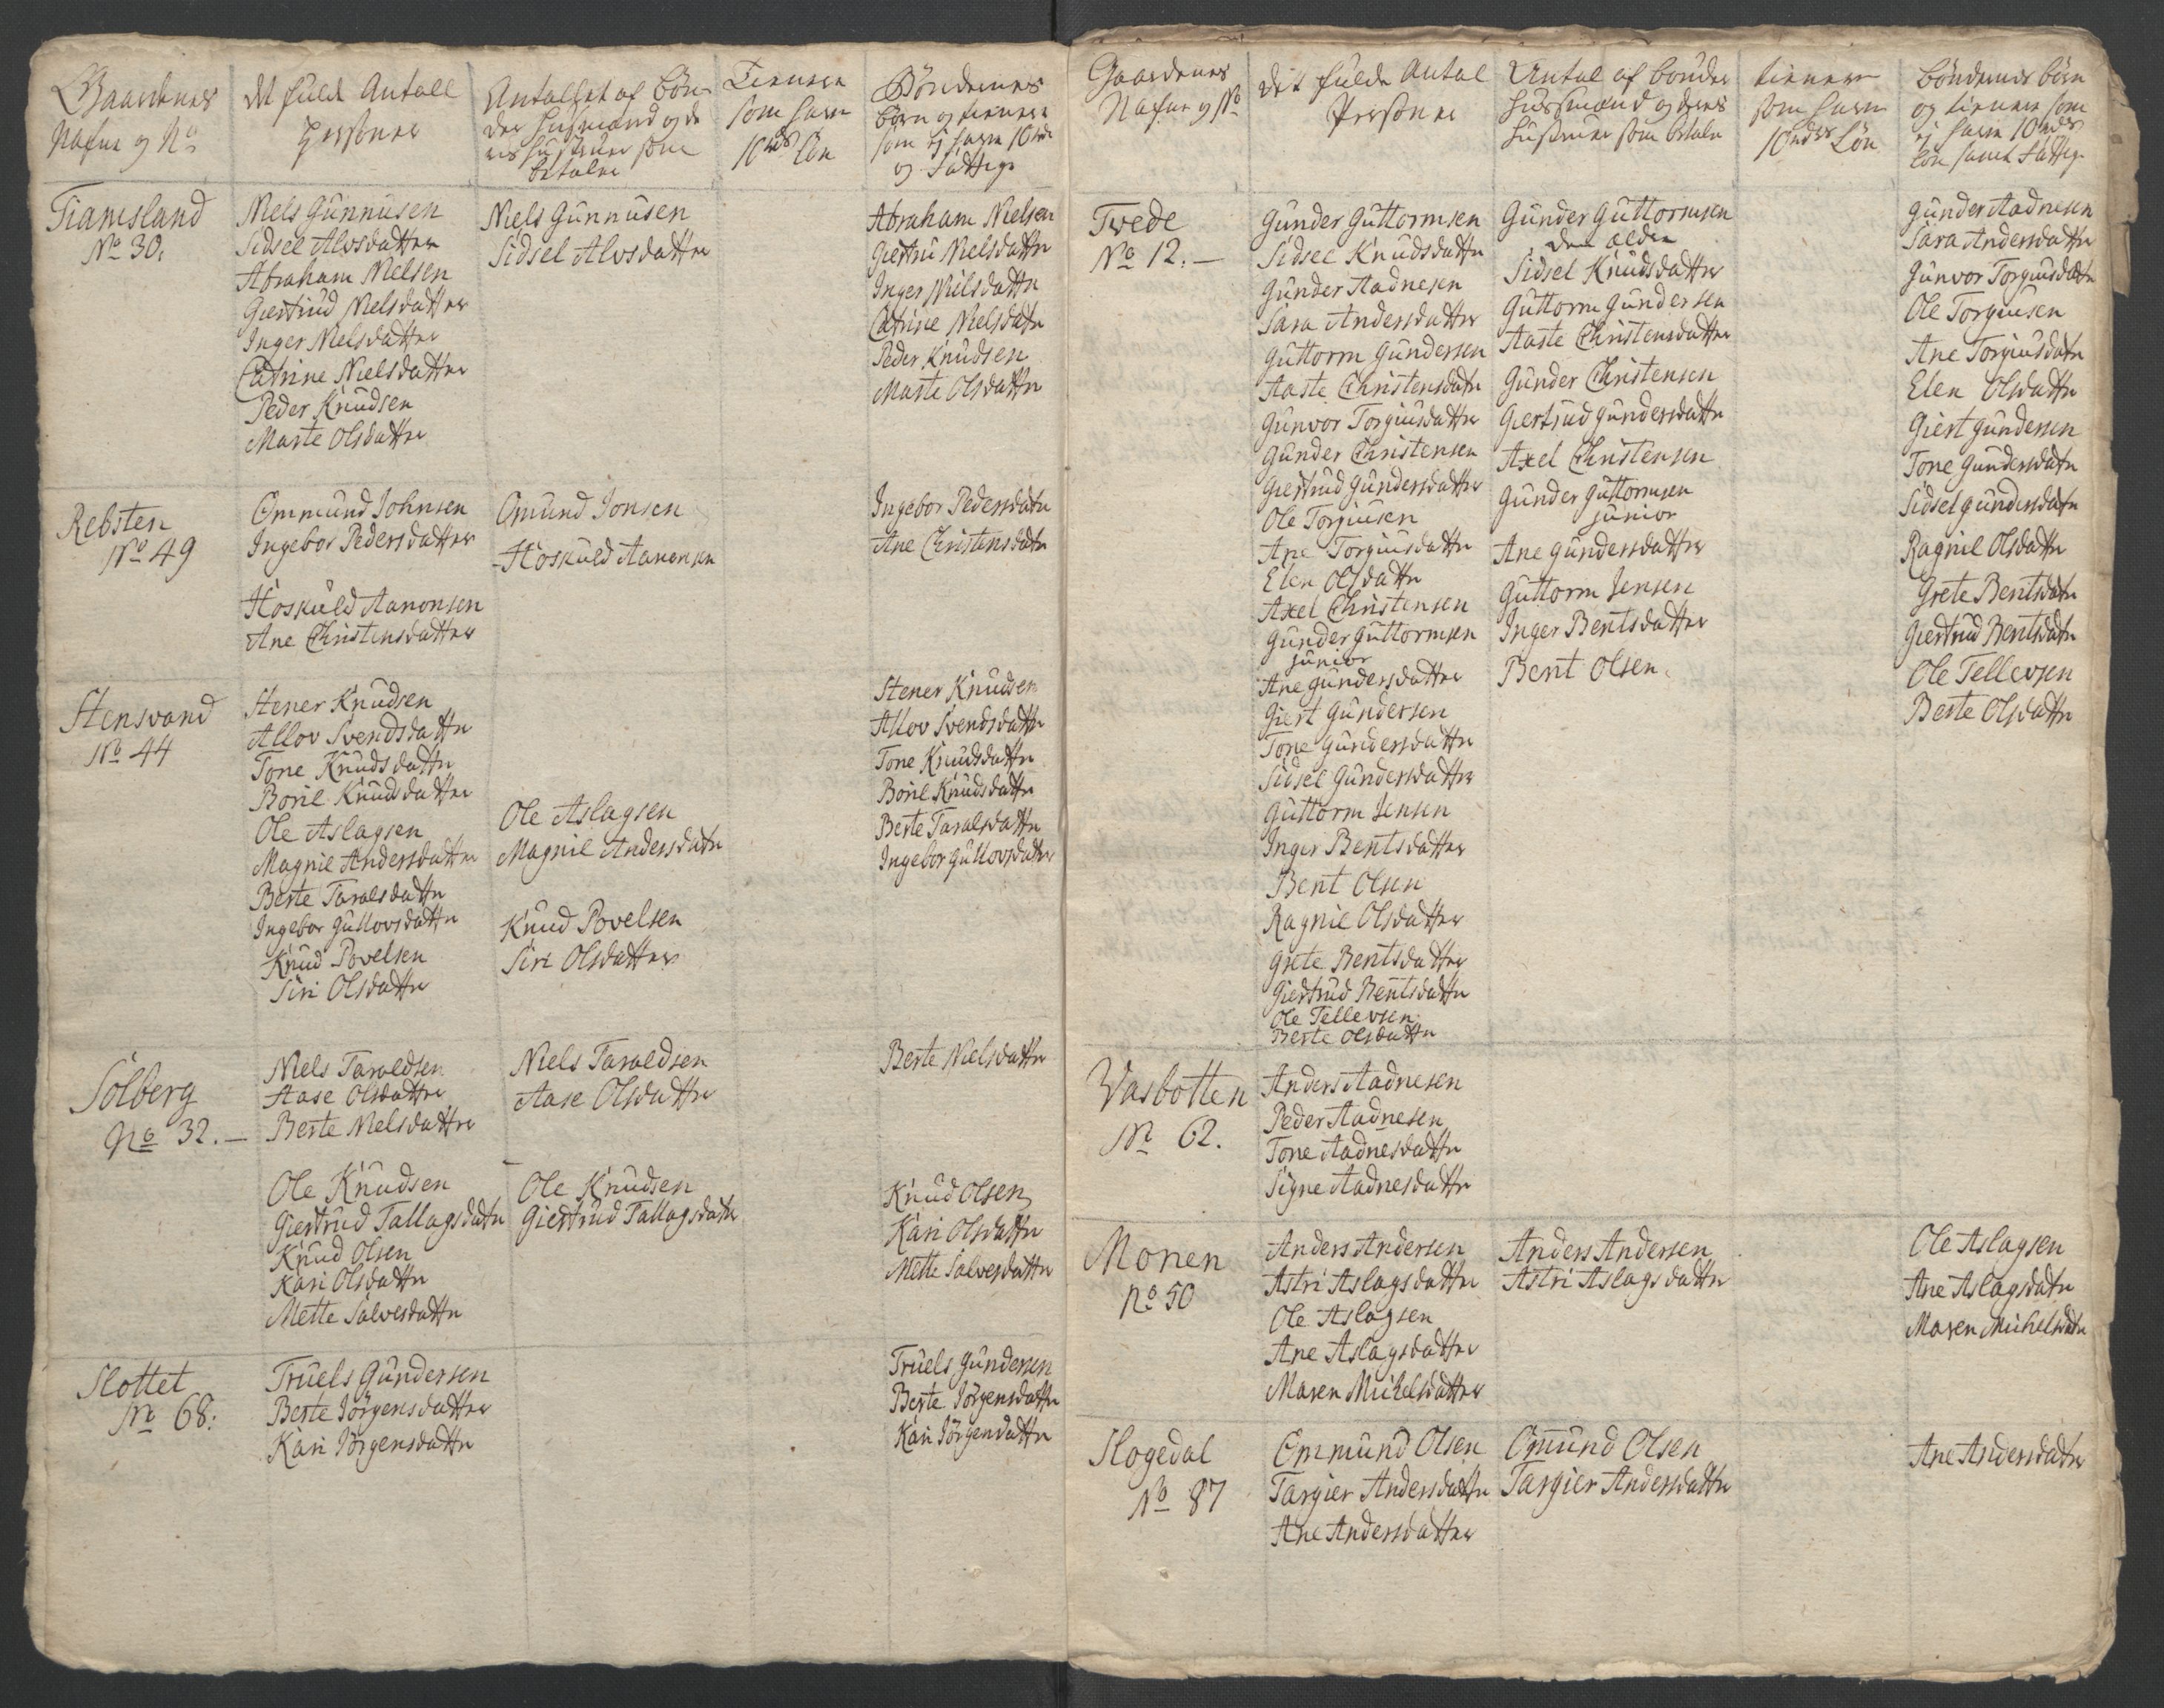 Gaardenes
Nafn og No
Det fulde Antall
Personer
Antallet af bøn-
der husmænd og de
res hustruer som
betaler
Tienere
som have
10rdrs løn
Bøndernes
børn og tienere
som ej have 10rdr
og fattige
Tiamsland
No 30.
Niels Gunnusen
Sidsel Alvsdatter
Abraham Nielsen
Giertrud Nielsdatter
Inger Nielsdatter
Catrine Nielsdatter
Peder Knudsen
Marte Olsdatter
Niels Gunnusen
Sidsel Alvsdatter
Abraham Nielsen
Giertru Nielsdattr
Inger Nielsdattr
Catrine Nielsdatr
Peder Knudsen
Marte Olsdattr
Rebsten
No 49
Ommund Johnsen
Ingebor Pedersdatter
Hoskuld Aanonsen
Ane Christensdatter
Omund Jonsen
Hoskuld Aanonsen
Ingebor Pedersdatr
Ane Christensdatr
Stensvand
No 44
Stener Knudsen
Allov Svendsdattr
Tone Knudsdattr
Boril Knudsdatter
Ole Aslagsen
Magnil Andersdatter
Berte Taralsdattr
Ingebor Gullovsdattr
Knud Povelsen
Siri Olsdattr
Ole Aslagsen
Magnil Andersdatr
Knud Povelsen
Siri Olsdatter
Stener Knudsen
Allov Svendsdattr
Tone Knudsdattr
Boril Knudsdattr
Berte Taralsdattr
Ingebor Gullovsdatter
Solberg
No 32.
Niels Taraldsen
Aase Olsdatter
Berte Nielsdatter
Ole Knudsen
Giertrud Tallagsdatr
Knud Olsen
Kari Olsdattr
Mette Salvesdattr
Niels Taraldsen
Aase Olsdattr
Ole Knudsen
Giertrud Tallagsdatr
Berte Nielsdattr
Knud Olsen
Kari Olsdattr
Mette Salvesdattr
Slottet
No 68.
Truels Gundersen
Berte Jörgensdatter
Kari Jörgensdattr
Truels Gundersen
Berte Jörgensdattr
Kari Jörgensdattr
Gaardenes
Nafn og No
Det fulde Antal
Personer
Antal af bönder
husmænd og deres
hustruer som betale
tienere
som have
10rdrs Løn
böndernes börn
og tienere som
ej have 10rdrs
Løn samt fattige
Twede
No 12.
Gunder Guttormsen
Sidsel Knudsdattr
Gunder Aadnesen
Sara Andersdatter
Guttorm Gundersen
Aaste Christensdatr
Gunvor Torgiusdatter
Gunder Christensen
Giertrud Gundersdatter
Ole Torgiusen
Ane Torgiusdattr
Elen Olsdattr
Axel Christensen
Gunder Guttormsen
junior
Ane Gundersdatter
Giert Gundersen
Tone Gundersdattr
Sidsel Gundersdatter
Guttorm Jensen
Inger Bentsdatter
Bent Olsen
Ragnil Olsdatter
Grete Bentsdatter
Giertrud Bentsdattr
Ole Tellevsen
Berte Olsdattr
Gunder Guttormsen
den ældre
Sidsel Knudsdatter
Guttorm Gundersen
Aaste Christensdatter
Gunder Christensen
Giertrud Gundersdattr
Axel Christensen
Gunder Guttormsen
junior
Ane Gundersdatter
Guttorm Jensen
Inger Bentsdatter
Bent Olsen
Gunder Aadnesen
Sara Andersdattr
Gunvor Torgiusdatr
Ole Torgiusen
Ane Torgiusdatr
Elen Olsdattr
Giert Gundersen
Tone Gundersdatr
Sidsel Gundersdatr
Ragnil Olsdattr
Grete Bentsdatr
Giertrud Bentsdatr
Ole Tellevsen
Berte Olsdattr
Vasbotten
No 62.
Anders Aadnesen
Peder Aadnesen
Tone Aadnesdattr
Signe Aadnesdattr
Monen
No 50
Anders Andersen
Astri Aslagsdattr
Ole Aslagsen
Ane Aslagsdatter
Maren Michelsdatter
Anders Andersen
Astri Aslagsdattr
Ole Aslagsen
Ane Aslagsdatr
Maren Michelsdatr
Slogedal
No 87
Ommund Olsen
Targier Andersdattr
Ane Andersdatter
Omund Olsen
Targier Andersdattr
Ane Andersdatter